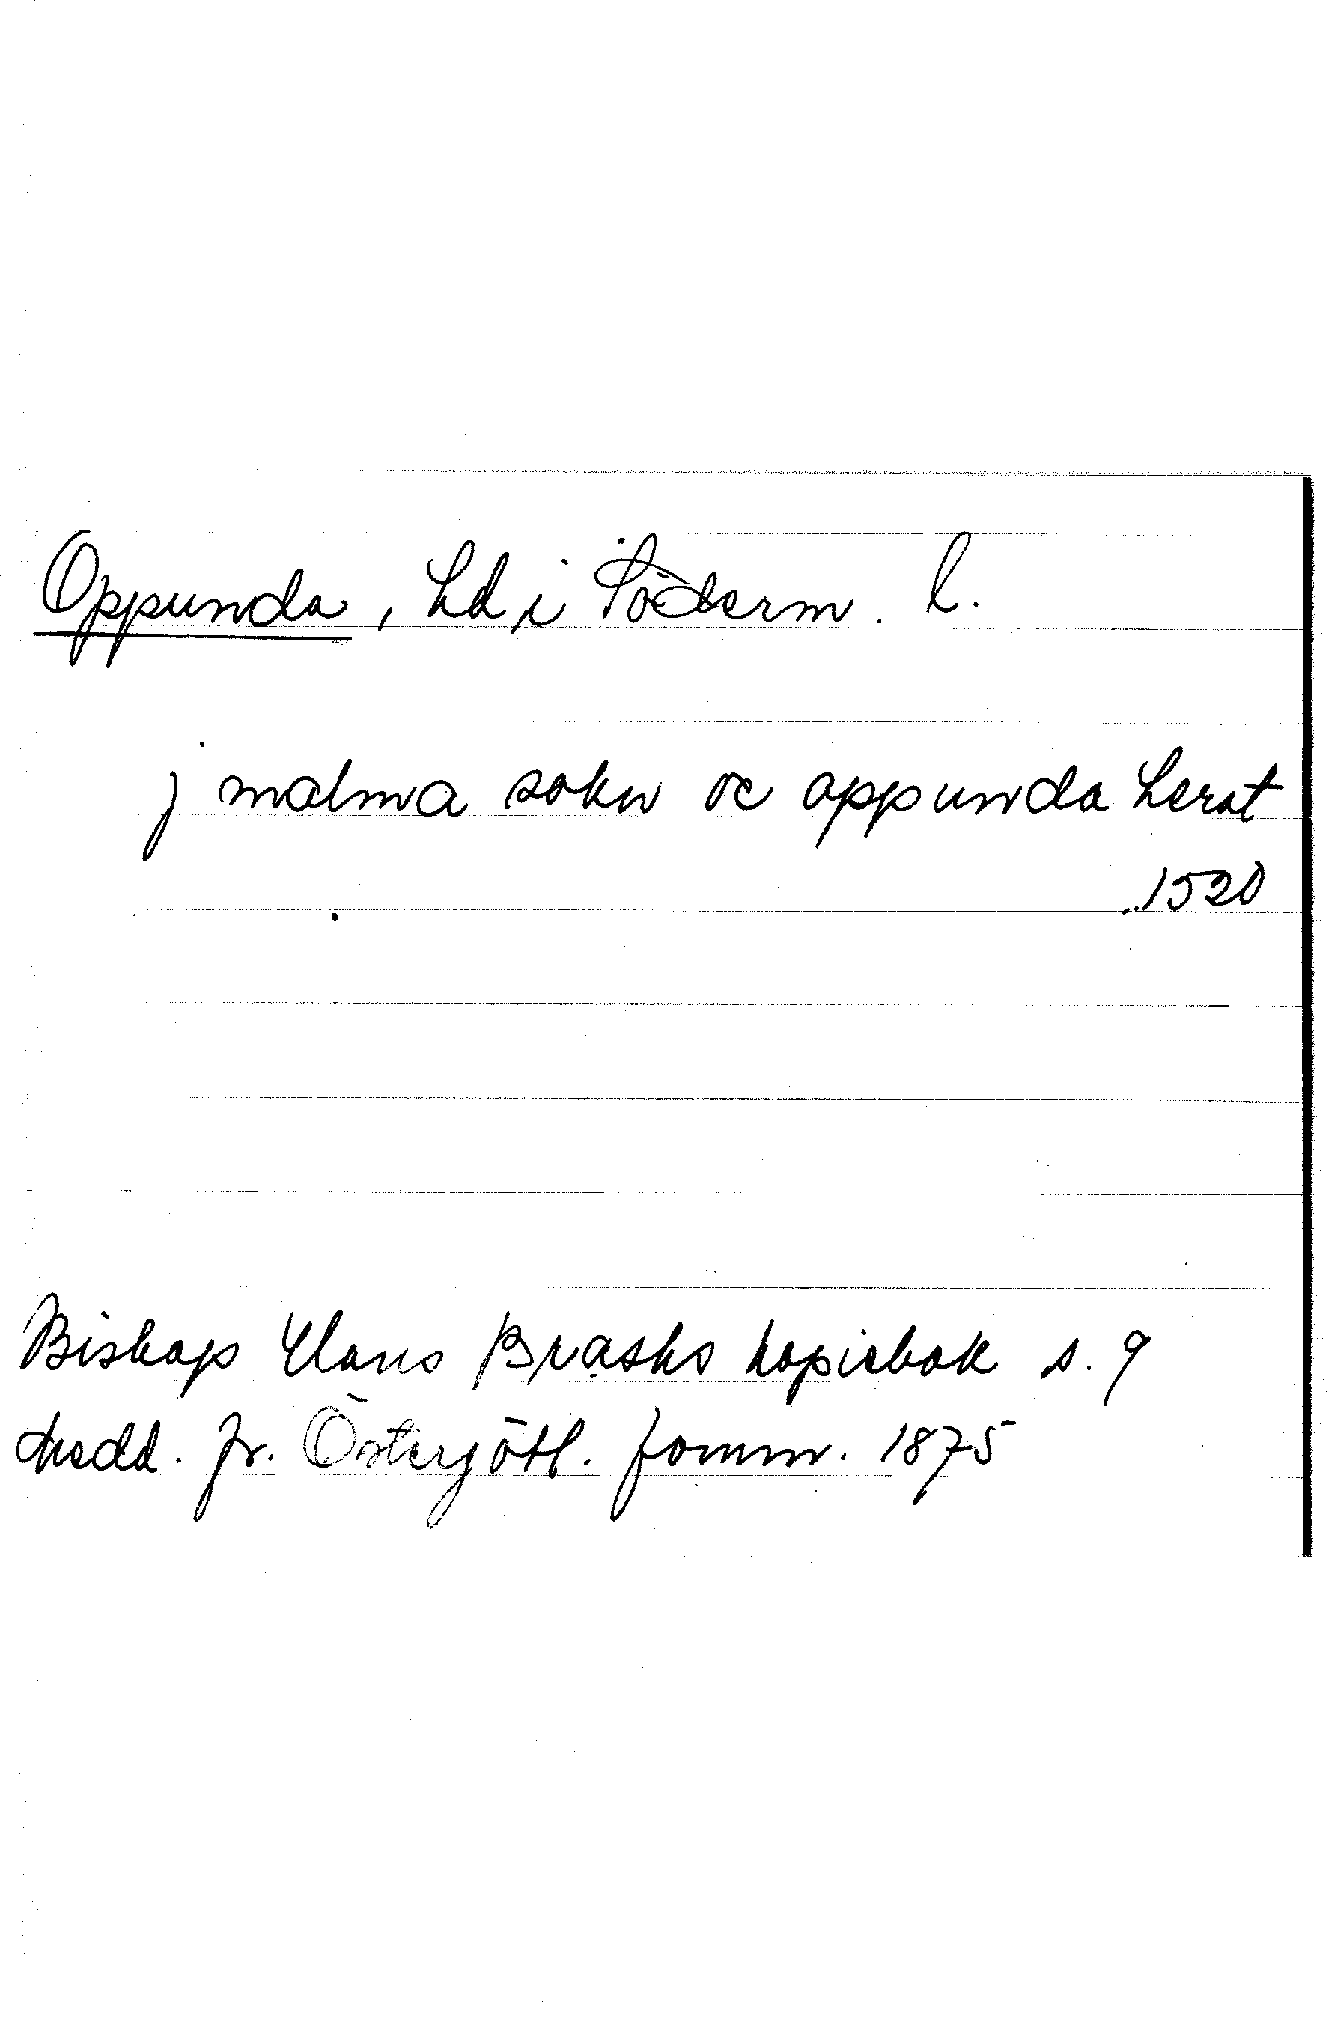 Oppunda, hd i Söderm. l.
j malma sokn oc oppunda herat
1520
Biskop Hans Brasks kopiebok s. 9
Medd. fr. Östergötl. fornm. 1875